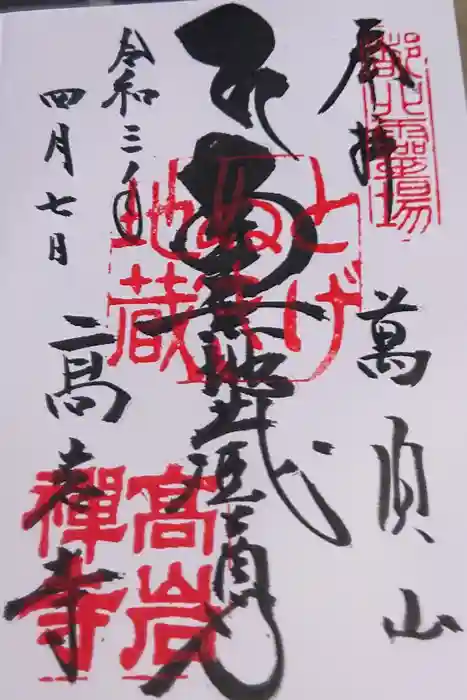 奉拝
萬頂山
南無地蔵尊
令和三年
四月七日
高岩寺
とげ
ぬき
地蔵
高岩
禪寺